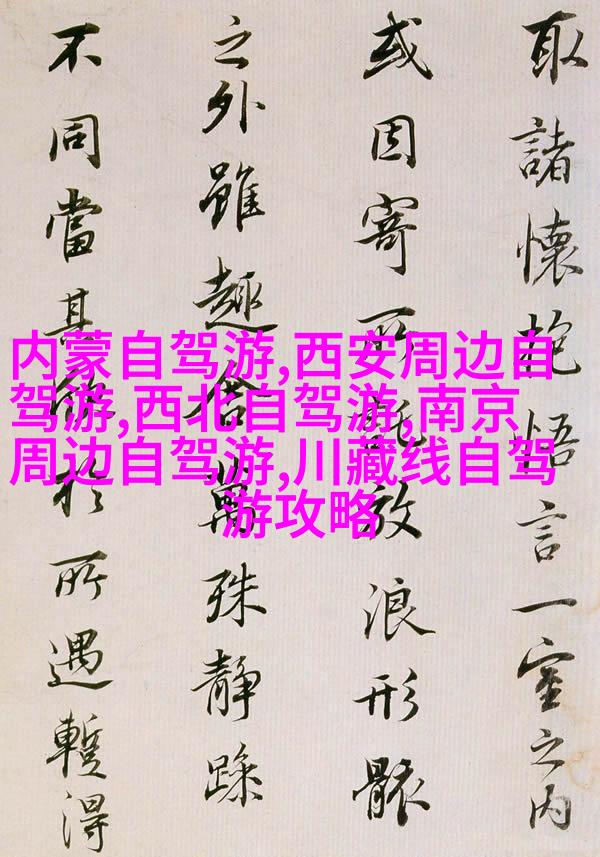 取諸懷抱悟言一室之内
或因寄所託放浪形骸
之外雖趣舍萬殊静躁
不同當其欣於所遇蹔得
内蒙自驾游,西安周边自
驾游,西北自驾游,南京
周边自驾游,川藏线自驾
游攻略